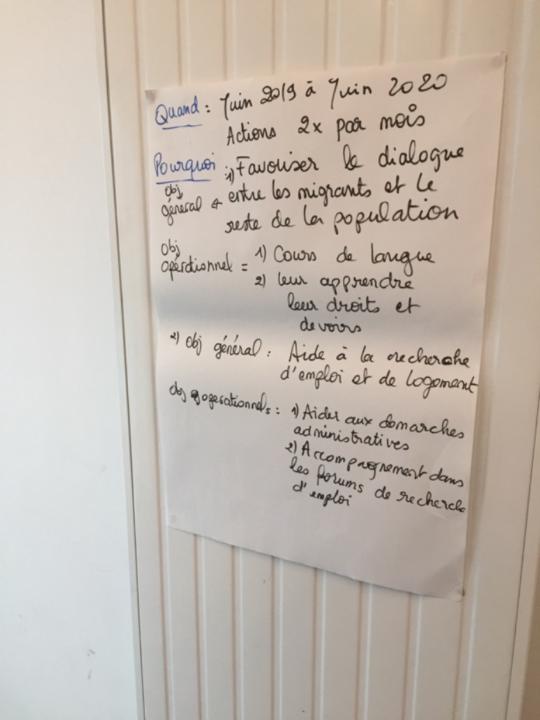 Quand : Juin 2019 à Juin 2020
Actions 2x par mois
Pourquoi : 1) Favoriser le dialogue
obj général entre les migrants et le
reste de la population
obj opérationnel = 1) Cours de langue
2) leur apprendre
leur droits et
devoirs
2) obj général : Aide à la recherche
d'emploi et de logement
obj opérationnels : 1) Aider aux démarches
administratives
2) Accompagnement dans
les forums de recherche
d'emploi